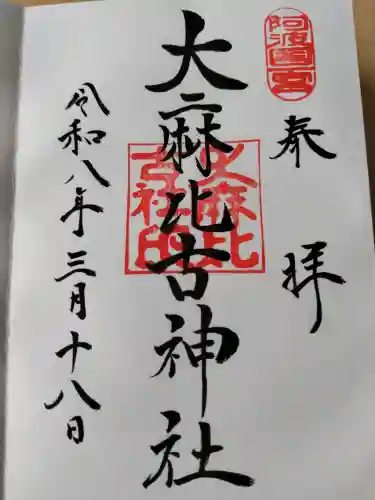 阿波一宮
奉拝
大麻比古神社
大麻比古社印
令和八年三月十八日